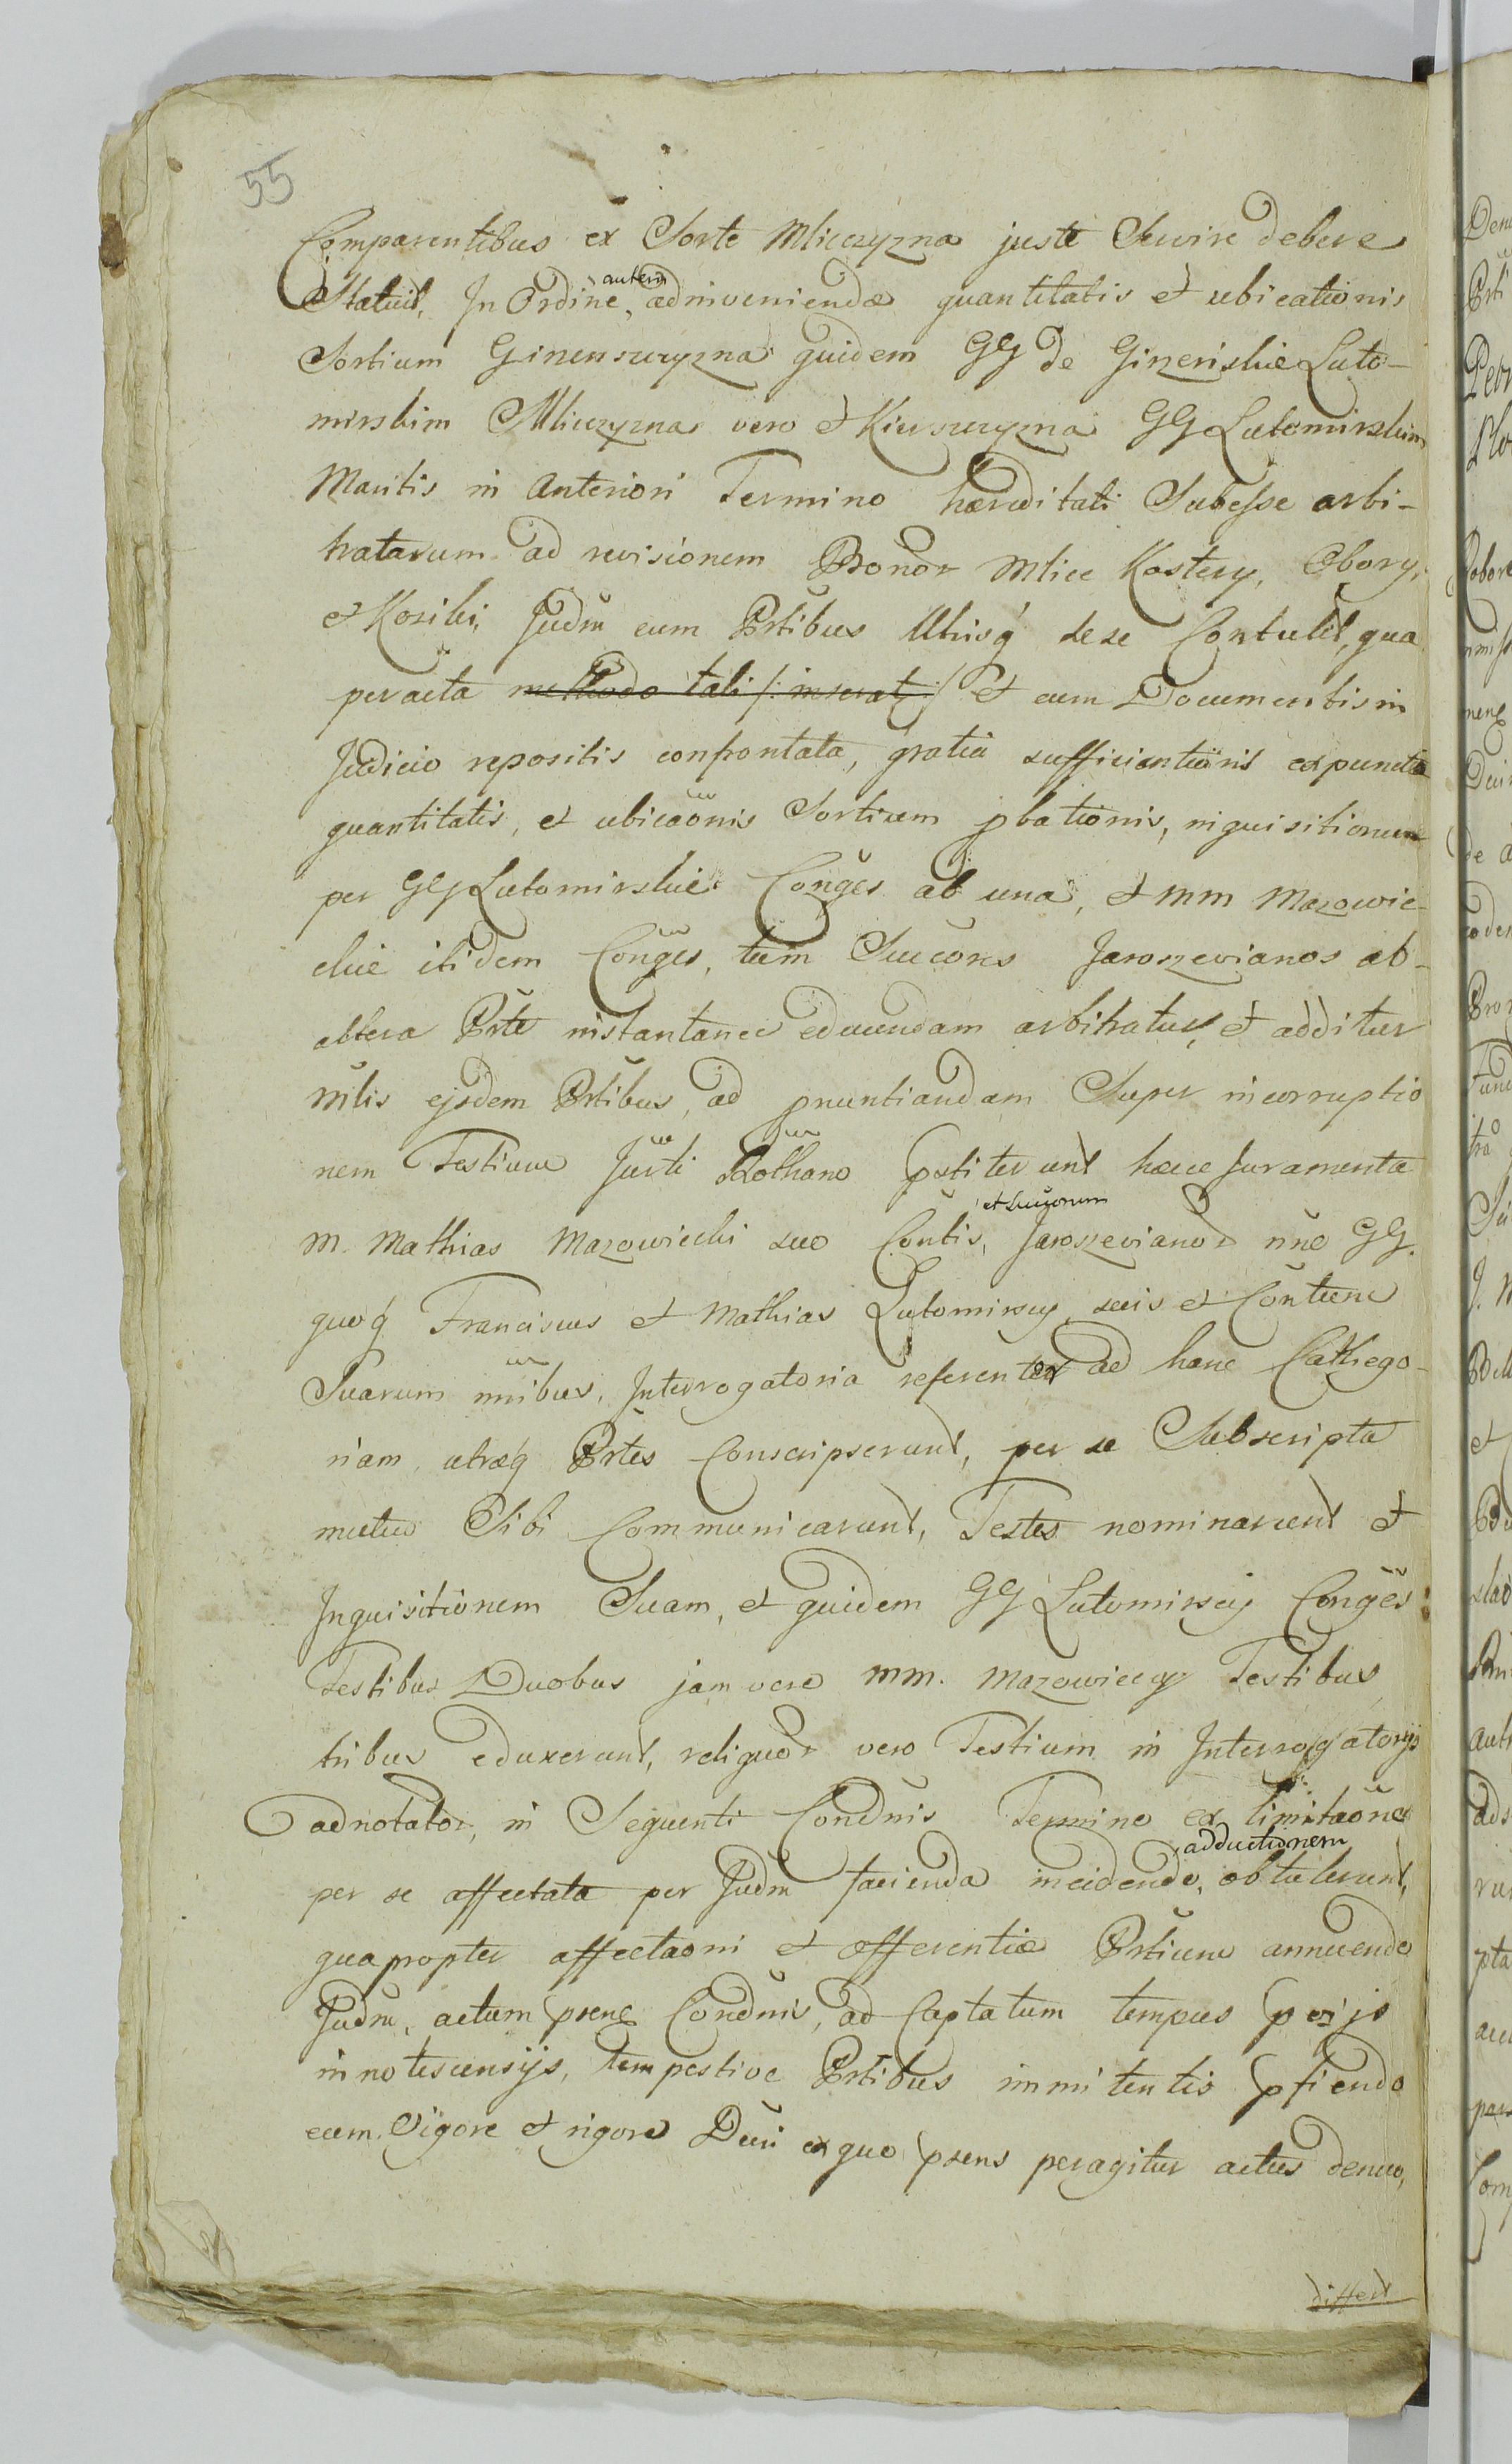 55
Comparentibus ex Sorte Mliczyzna juste Servire debere
Statuit, In Ordine autem adinveniendæ quantitatis et ubicationis
Sortium Ginensczyzna quidem GG de Gizenskie Luto-
mirskim Mliczyzna vero et Kierszczyzna GG Lutomirskim
Maritis in Anteriori Termino hæreditati Subesse arbi-
tratarum ad revisionem Bonor Mlice Kostery, Obory,
et Kozibi, Judm cum Prtibus Uthisq sese Contulit, qua
peracta methodo tali /: inserat :/ et cum Documentis in
Judicio repositis confrontata, gratia sufficientioris expuncta
quantitatis, et ubicaonis Sortium pbationis, inquisitionem
per GG Lutomirskie Conges ab una, et MM Mazowie-
ckie itidem Conges, tum Succores Jaroszevianos ab
altera Prte instantanee educendam arbitratur, et additur
Mlis ejsdem Prtibus, ad pnuntiandam Super incorruptio
nem Testium Jurti Rothano pstiterunt hæce Juramenta
M. Mathias Mazowiecki suo Contis, et Succorum Jaroszevianor nne GG.
quoq Franciscus et Mathias Lutomirscy suis et Contum
Suarum nnibus, Interrogatoria referenter ad hanc Cathego-
riam, utræq Prtes Conscripserunt, per se Subscripta
mutuo Sibi Communicarunt, Testes nominarunt et
Inquisitionem Suam, et quidem GG Lutomirscy Conges
Testibus Duobus jam vero MM. Mazowieccy Testibus
tribus eduxerunt, reliquor vero Testium in Interrogatorys
adnotator, in Sequenti Condnis Termino ex limitaone
per se affectata per Judm facienda incidendo, adductionem obtulerunt,
quapropter affectaoni et offerentiæ Prtium annuendo
Judm, actum psens Condnis, ad Captatum tempus p
innotescensijs, tempestive Prtibus immitentis pfiendo
cum Vigore et rigore Dcri ex quo psens peragitur actus denuo,
differt